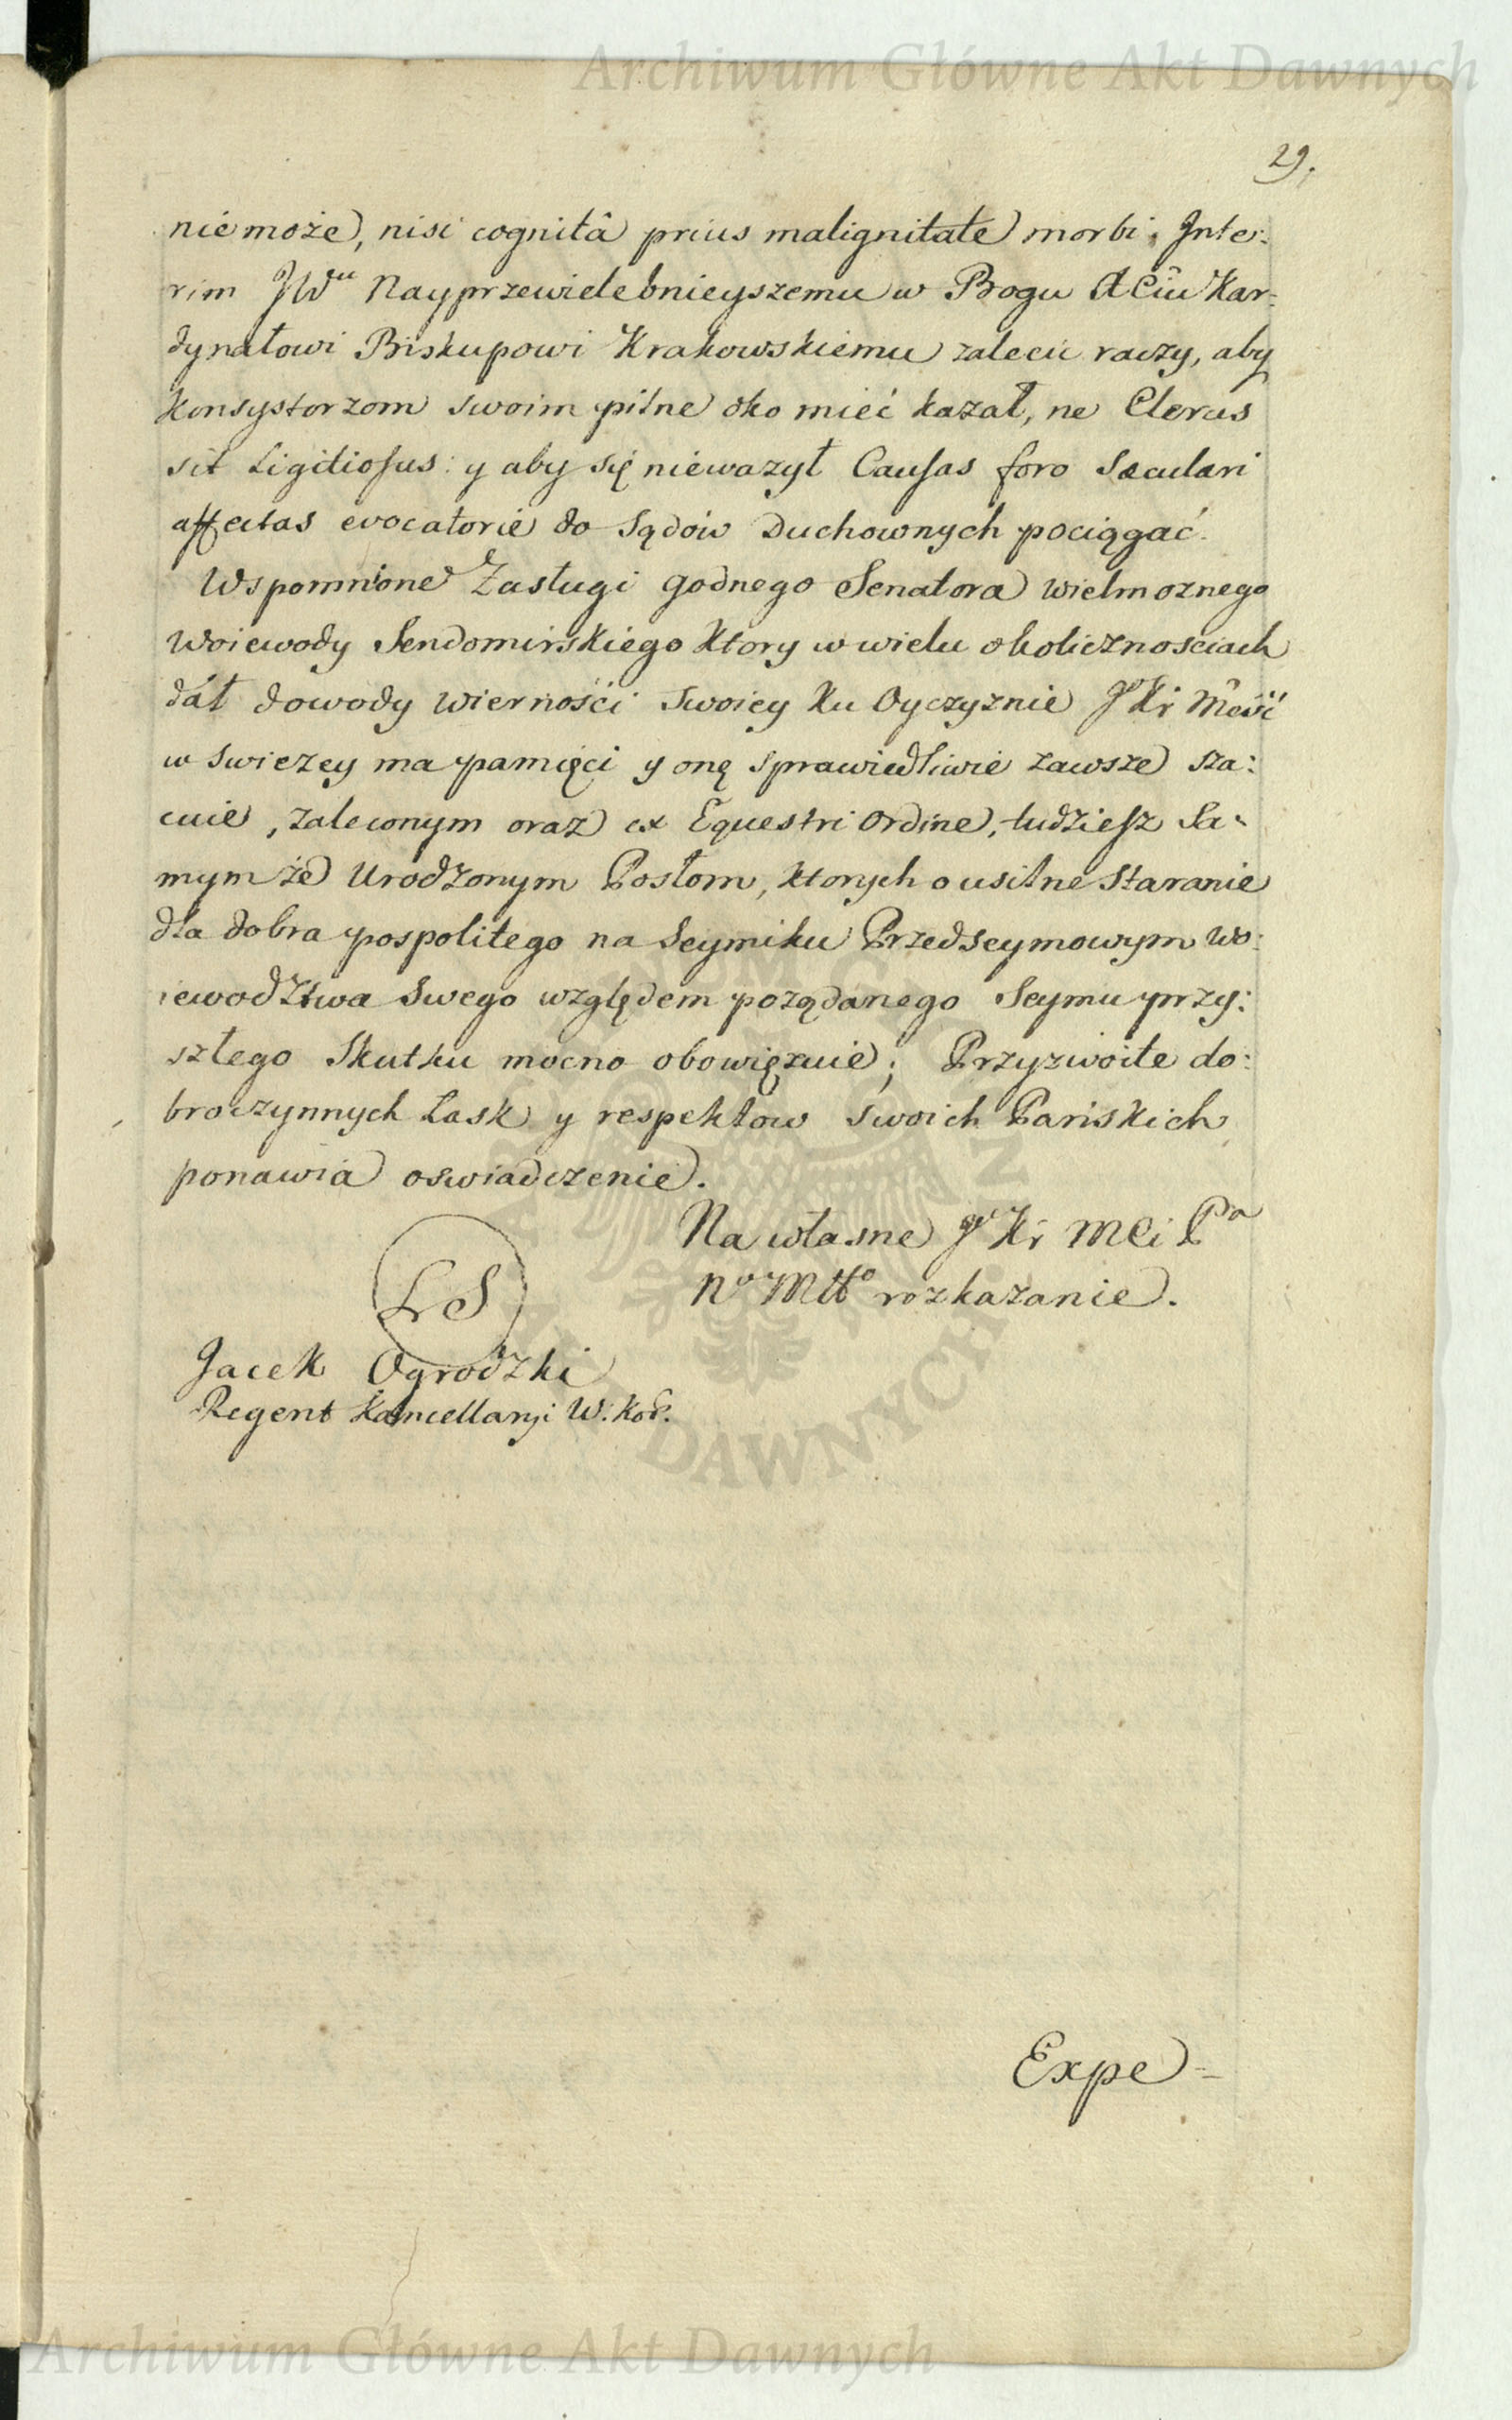 Archiwum Główne Akt Dawnych
29.
nie może, nisi cognitâ prius malignitate morbi, Inte:
rim JWu Nayprzewielebnieyszemu w Bogu Kar:
dynałowi Biskupowi Krakowskiemu zalecić raczy, aby
Konsystorzom swoim pilne oko mieć kazał, ne Clerus
sit Ligitiosus: y aby się nieważył Causas foro Sæculari
affectas evocatorie do Sądów Duchownych pociągać.
Wspomnione Zasługi godnego Senatora Wielmoznego
Woiewody Sendomirskiego ktory w wielu okolicznosciach
dał dowody wiernośći swoiey ku Oyczyznie JKr Mość
w swiezey ma pamięci y onę sprawiedliwie zawsze sza:
cuie, zaleconym oraz ex Equestri Ordine, tudziesz Sa:
mym że Urodzonym Posłom, ktorych o usilne staranie
dla dobra pospolitego na Seymiku Przedseymowym Wo:
iewodztwa Swego względem pożądanego Seymu przy:
szłego Skutku mocno obowięzuie; Przyzwoite do:
broczynnych Łask y respektow swoich Pańskich
ponawia oswiadczenie.
Na własne JKr Mci Pa
No Mtto rozkazanie.
LS
Jacek Ogrodzki
Regent Kancellaryi W. Kor.
Expe=
DAWNYCH
Archiwum Główne Akt Dawnych